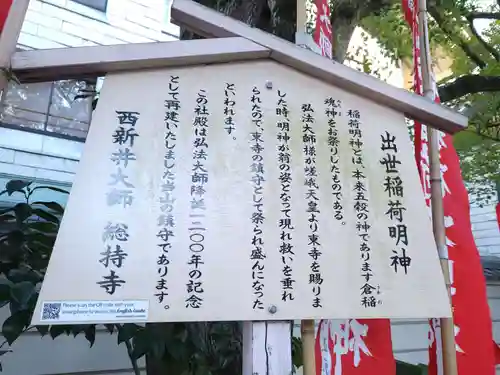 出世稲荷明神
稲荷明神とは、本来五穀の神であります倉稲
魂神をお祭りしたものである。
弘法大師様が嵯峨天皇より東寺を賜りま
した時、明神が翁の姿となって現れ救いを垂れ
られたので、東寺の鎮守として祭られ盛んになった
といわれます。
この社殿は弘法大師降誕一二〇〇年の記念
として再建いたしました当山の鎮守であります。
西新井大師 總持寺
Please scan the QR code with
your smartphone
English Guide